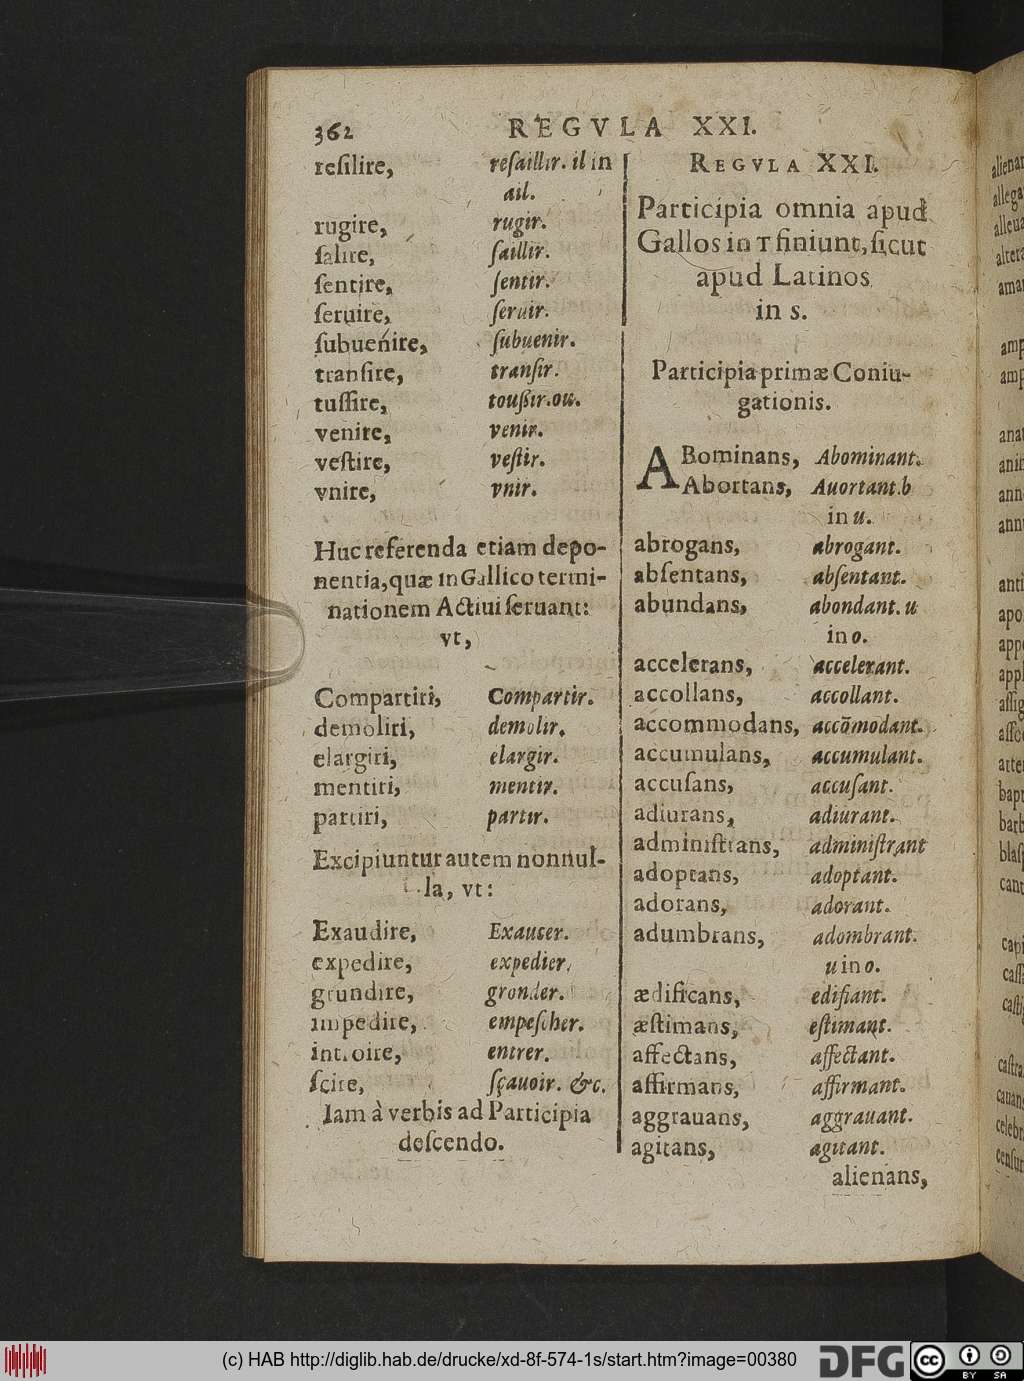 362 REGVLA XXI.
reſilire, reſaillir. il in
ail.
rugire, rugir.
ſalire, ſaillir.
ſentire, ſentir.
ſeruire, ſeruir.
ſubuenire, ſubuenir.
tranſire, tranſir.
tuſſire, touſſir. ou.
venire, venir.
veſtire, veſtir.
vnire, vnir.
Huc referenda etiam depo-
nentia, quæ in Gallico termi-
nationem Actiui ſeruant:
vt,
Compartiri, Compartir.
demoliri, demolir.
elargiri, elargir.
mentiri, mentir.
partiri, partir.
Excipiuntur autem nonnul-
la, vt:
Exaudire, Exaucer.
expedire, expedier.
grundire, gronder.
impedire, empeſcher.
introire, entrer.
ſcire, ſçauoir. &c.
Iam à verbis ad Participia
deſcendo.
REGVLA XXI.
Participia omnia apud
Gallos in T finiunt, ſicut
apud Latinos
in s.
Participia primæ Coniu-
gationis.
ABominans, Abominant.
Abortans, Auortant. b
in u.
abrogans, abrogant.
abſentans, abſentant.
abundans, abondant. u
in o.
accelerans, accelerant.
accollans, accollant.
accommodans, accõmodant.
accumulans, accumulant.
accuſans, accuſant.
adiurans, adiurant.
adminiſtrans, adminiſtrant
adoptans, adoptant.
adorans, adorant.
adumbrans, adombrant.
u in o.
ædificans, edifiant.
æſtimans, eſtimant.
affectans, affectant.
affirmans, affirmant.
aggrauans, aggrauant.
agitans, agitant.
alienans,
(c) HAB http://diglib.hab.de/drucke/xd-8f-574-1s/start.htm?image=00380
DFG
cc BY SA